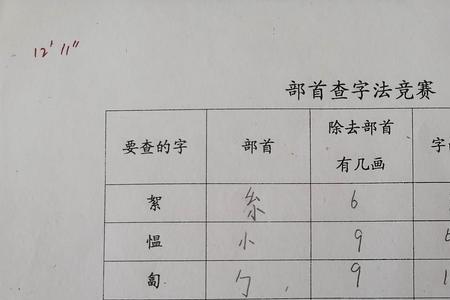 12' 11"
部首查字法竞赛
要查的字 部首 除去部首有几画 字
絮 糸 6
愠 小 9
匐 勹 9